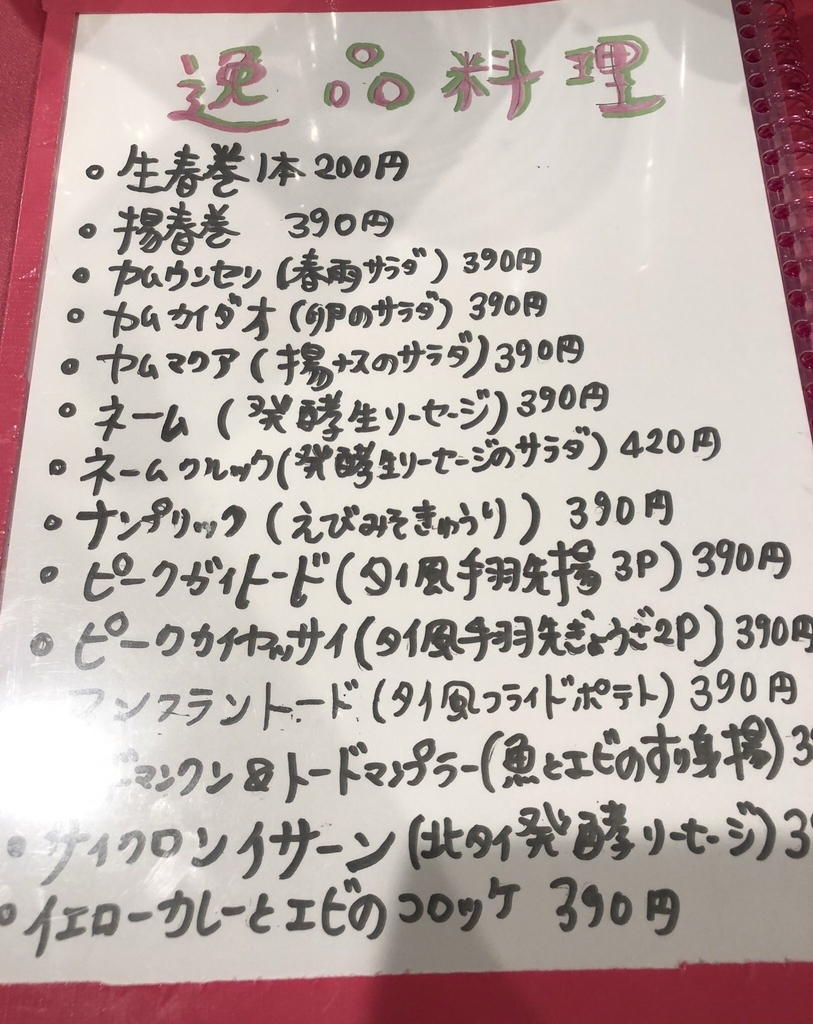 逸品料理
• 生春巻 1本 200円
• 揚春巻 390円
• ヤムウンセン (春雨サラダ) 390円
• ヤムカイダオ (卵のサラダ) 390円
• ヤムマクア (揚ナスのサラダ) 390円
• ネーム (発酵生ソーセージ) 390円
• ネームクルック (発酵生ソーセージのサラダ) 420円
• ナンプリック (えびみそきゅうり) 390円
• ピークガイトード (タイ風手羽先揚 3P) 390円
• ピークカイヤッサイ (タイ風手羽先ぎょうざ2P) 390円
マンスラントード (タイ風フライドポテト) 390円
ドマンクン&トードマンプラー (魚とエビのすり身揚) 3
• サイクロンイサーン (北タイ発酵ソーセージ) 39
• イエローカレーとエビのコロッケ 390円